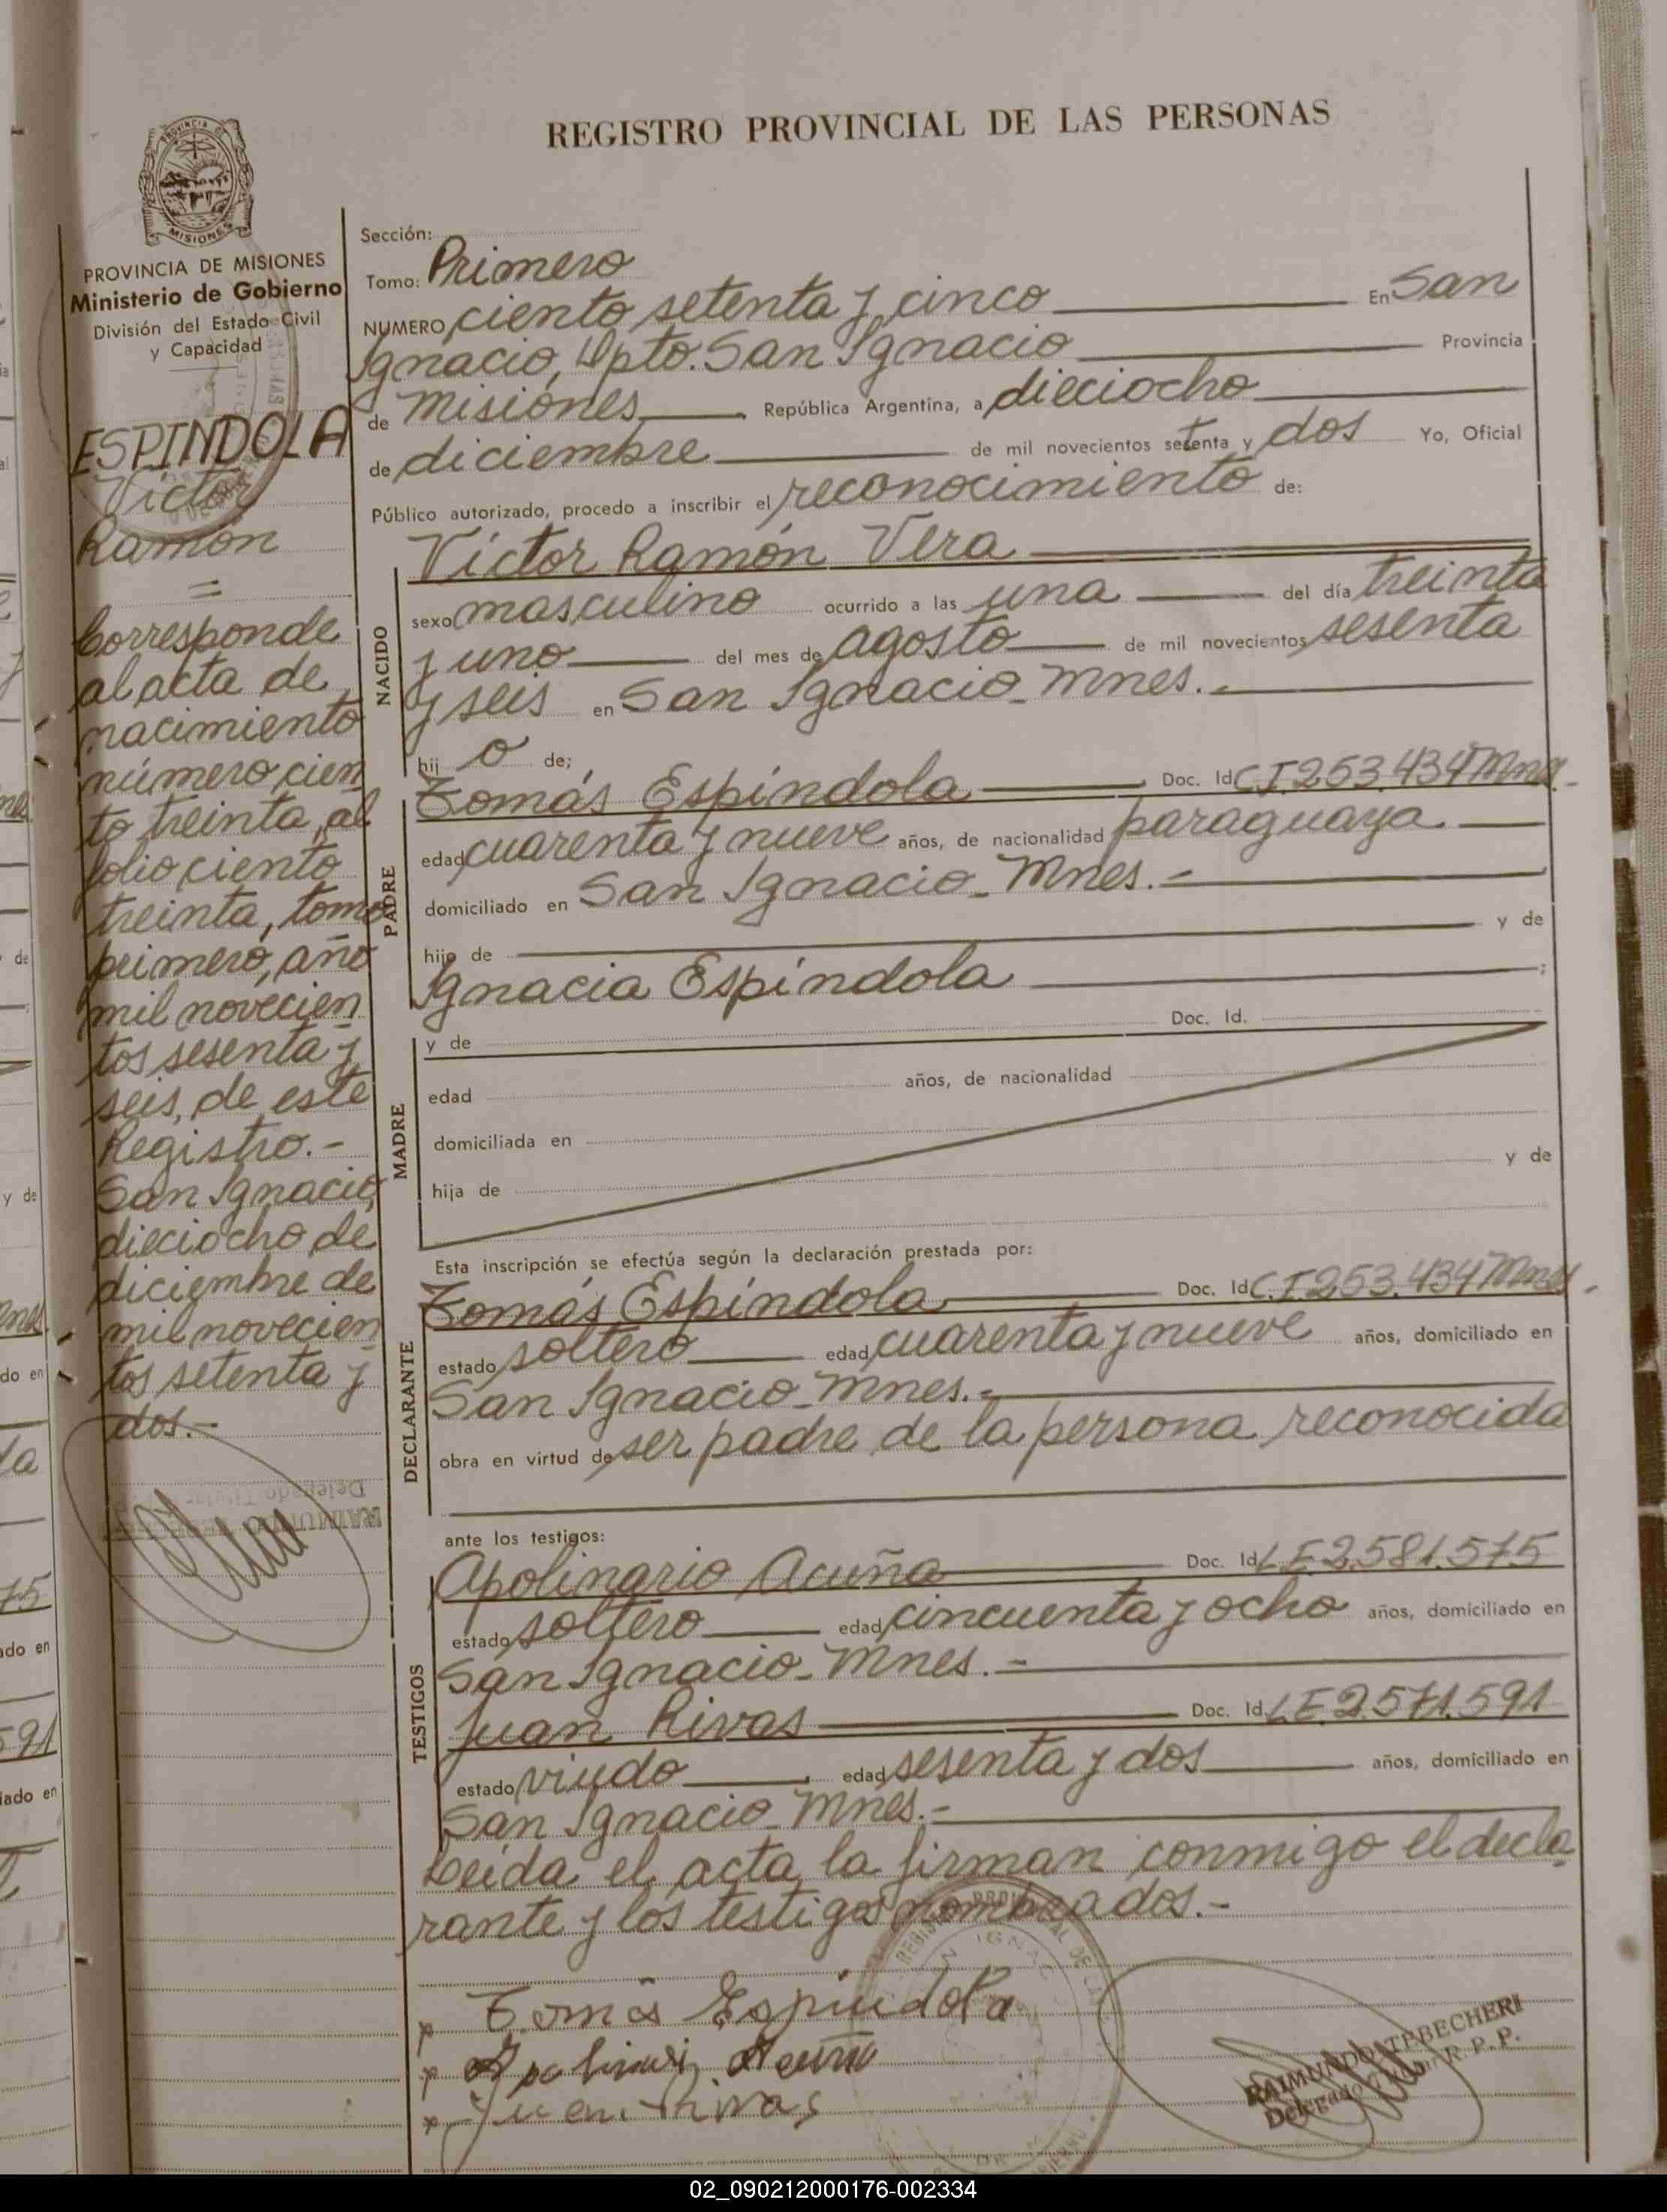 REGISTRO PROVINCIAL DE LAS PERSONAS
PROVINCIA DE
MISIONES
PROVINCIA DE MISIONES
Ministerio de Gobierno
División del Estado Civil
y Capacidad
ESPINDOLA
Víctor
Ramón
=
Corresponde
al acta de
nacimiento
número cien
to treinta, al
folio ciento
treinta, tomo
primero, año
mil novecien
tos sesenta y
seis, de este
Registro.-
San Ignacio,
dieciocho de
diciembre de
mil novecien
tos setenta y
dos.-
Sección:
Tomo: Primero
NUMERO ciento setenta y cinco En San
Ignacio, Dpto. San Ignacio Provincia
de Misiones República Argentina, a dieciocho
de diciembre de mil novecientos setenta y dos Yo, Oficial
Público autorizado, procedo a inscribir el reconocimiento de:
Víctor Ramón Vera
NACIDO
sexo masculino ocurrido a las una del día treinta
y uno del mes de agosto de mil novecientos sesenta
y seis en San Ignacio - Mnes.-
hij o de;
PADRE
Tomás Espíndola Doc. Id C.I 253.434 Mnes.
edad cuarenta y nueve años, de nacionalidad paraguaya.
domiciliado en San Ignacio - Mnes.-
hijo de y de
Ignacia Espíndola ;
MADRE
y de Doc. Id.
edad años, de nacionalidad
domiciliada en
hija de y de
Esta inscripción se efectúa según la declaración prestada por:
DECLARANTE
Tomás Espíndola Doc. Id C.I 253.434 Mnes.
estado soltero edad cuarenta y nueve años, domiciliado en
San Ignacio - Mnes.-
obra en virtud de ser padre de la persona reconocida
ante los testigos:
TESTIGOS
Apolinario Acuña Doc. Id L E 2.581.575
estado soltero edad cincuenta y ocho años, domiciliado en
San Ignacio - Mnes.-
Juan Rivas Doc. Id L E 2.571.591
estado viudo edad sesenta y dos años, domiciliado en
San Ignacio - Mnes.-
Leída el acta, la firman conmigo el decla
rante y los testigos nombrados.-
x Tomás Espindola
x Acuña
x Juan Rivas
RAIMUNDO
Delegado Titular R. P. P.
02_090212000176-002334